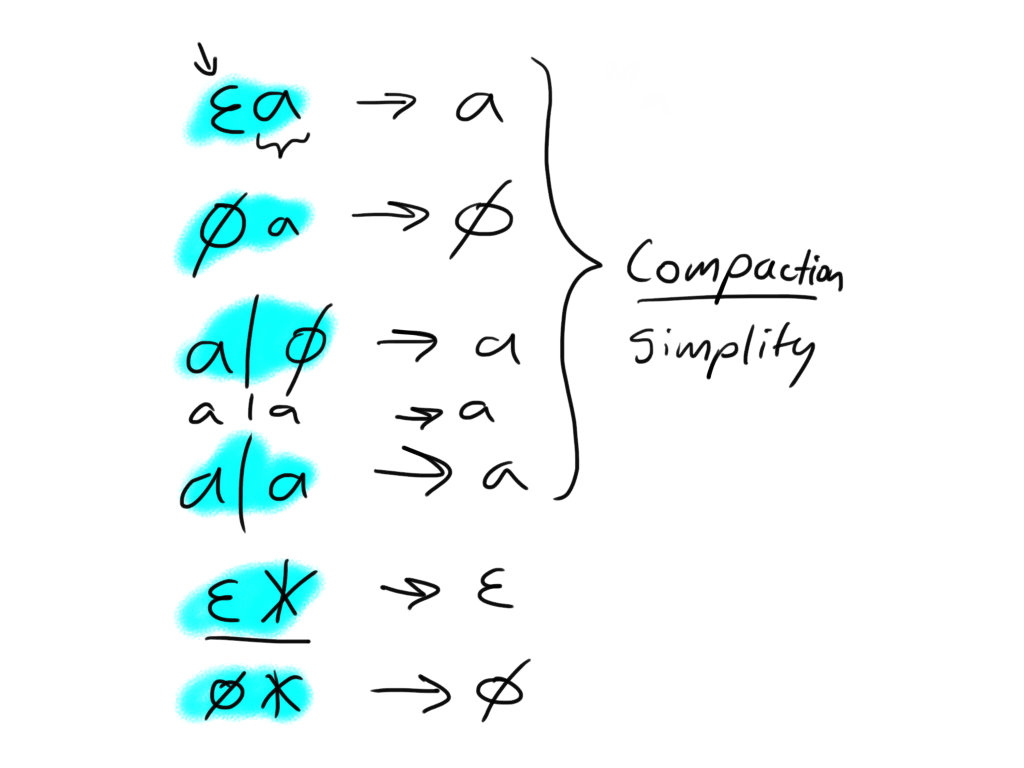 εa → a
∅a → ∅
a|∅ → a
a|a → a
a|a → a
ε* → ε
∅* → ∅
Compaction
simplity